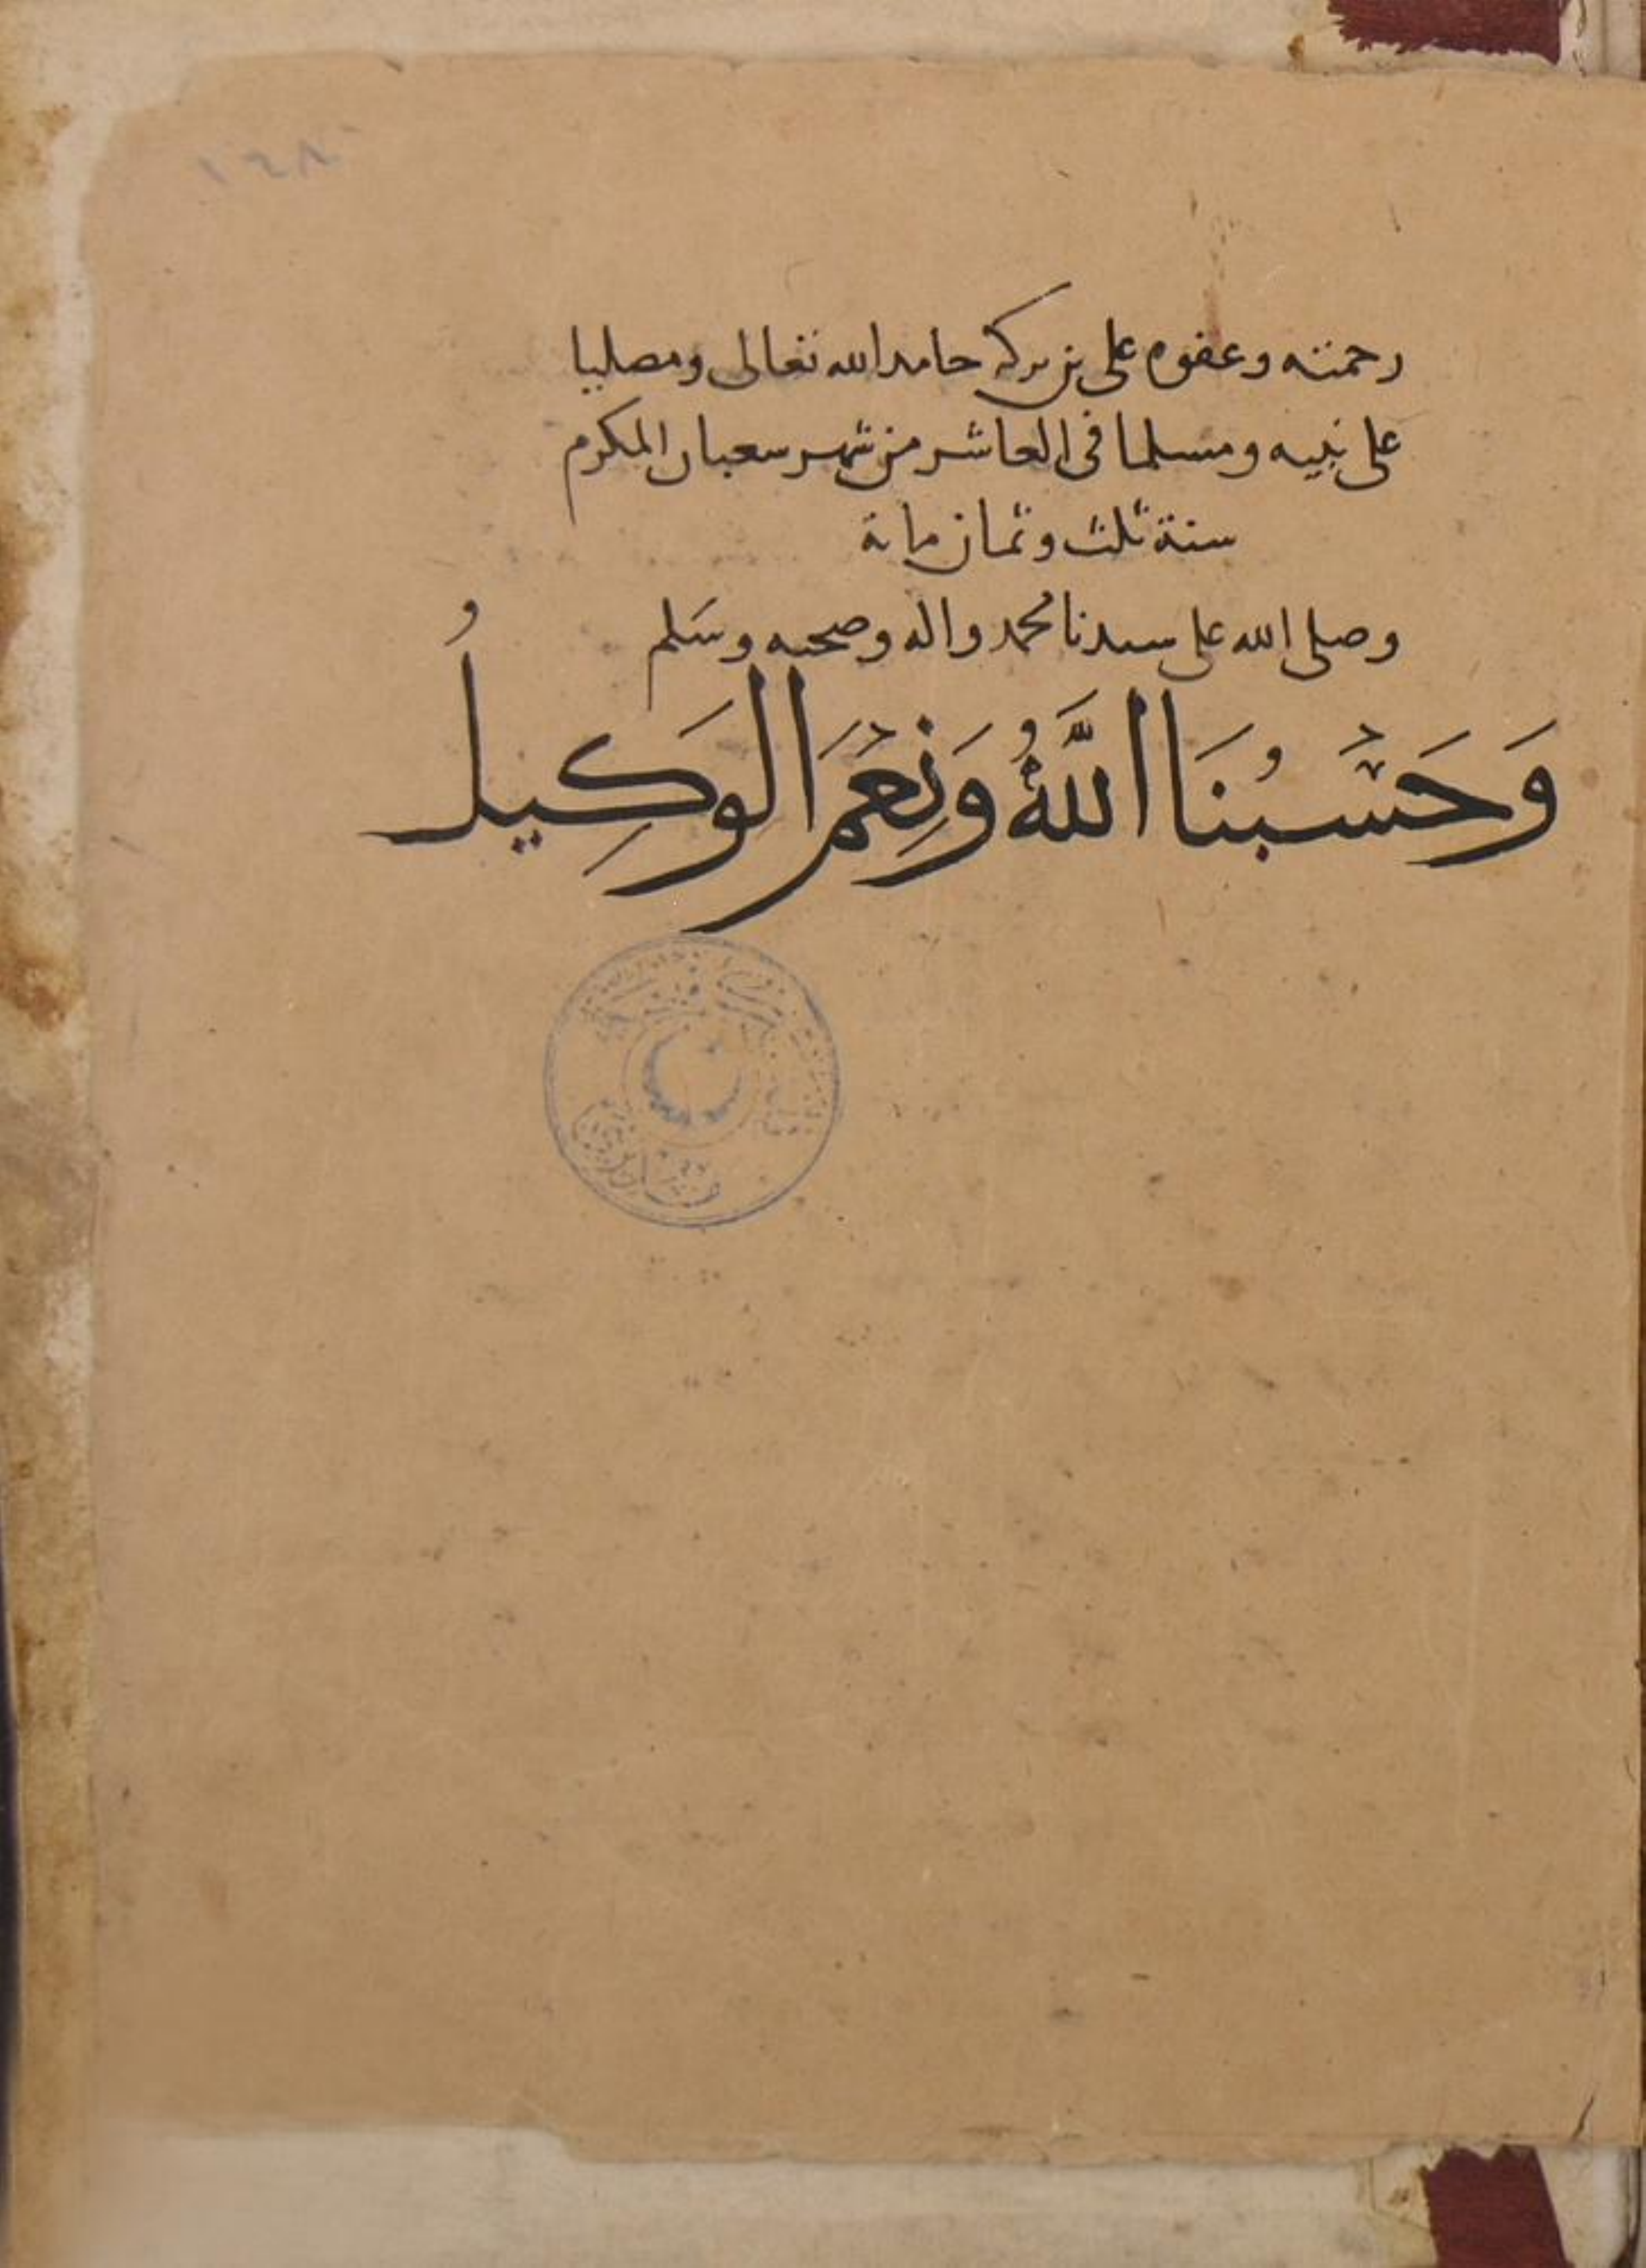 ١٦٨
رحمته وعفوه على بن بركه حامدا لله تعالى ومصليا
على نبيه ومسلما في العاشر من شهر سعبان المكرم
سنة ثلث وثمان ماية
وصلى الله على سيدنا محمد واله وصحبه وسَلم
وَحَسْبُنَا اللَّهُ وَنِعْمَ الوَكِيلُ